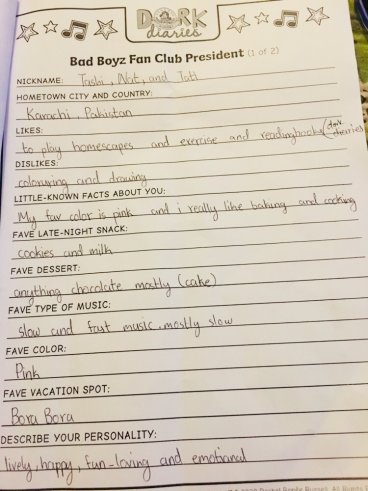 DORK
diaries
Bad Boyz Fan Club President (1 of 2)
NICKNAME: Tashi, Nat, and Tati
HOMETOWN CITY AND COUNTRY:
Karachi, Pakistan
LIKES:
to play homescapes and exercise and readingbooks (dork diaries)
DISLIKES:
colouring and drawing
LITTLE-KNOWN FACTS ABOUT YOU:
My fav color is pink and i really like baking and cooking
FAVE LATE-NIGHT SNACK:
cookies and milk
FAVE DESSERT:
anything chocolate mostly (cake)
FAVE TYPE OF MUSIC:
slow and fast music. mostly slow
FAVE COLOR:
Pink
FAVE VACATION SPOT:
Bora Bora
DESCRIBE YOUR PERSONALITY:
lively, happy, fun-loving and emotional